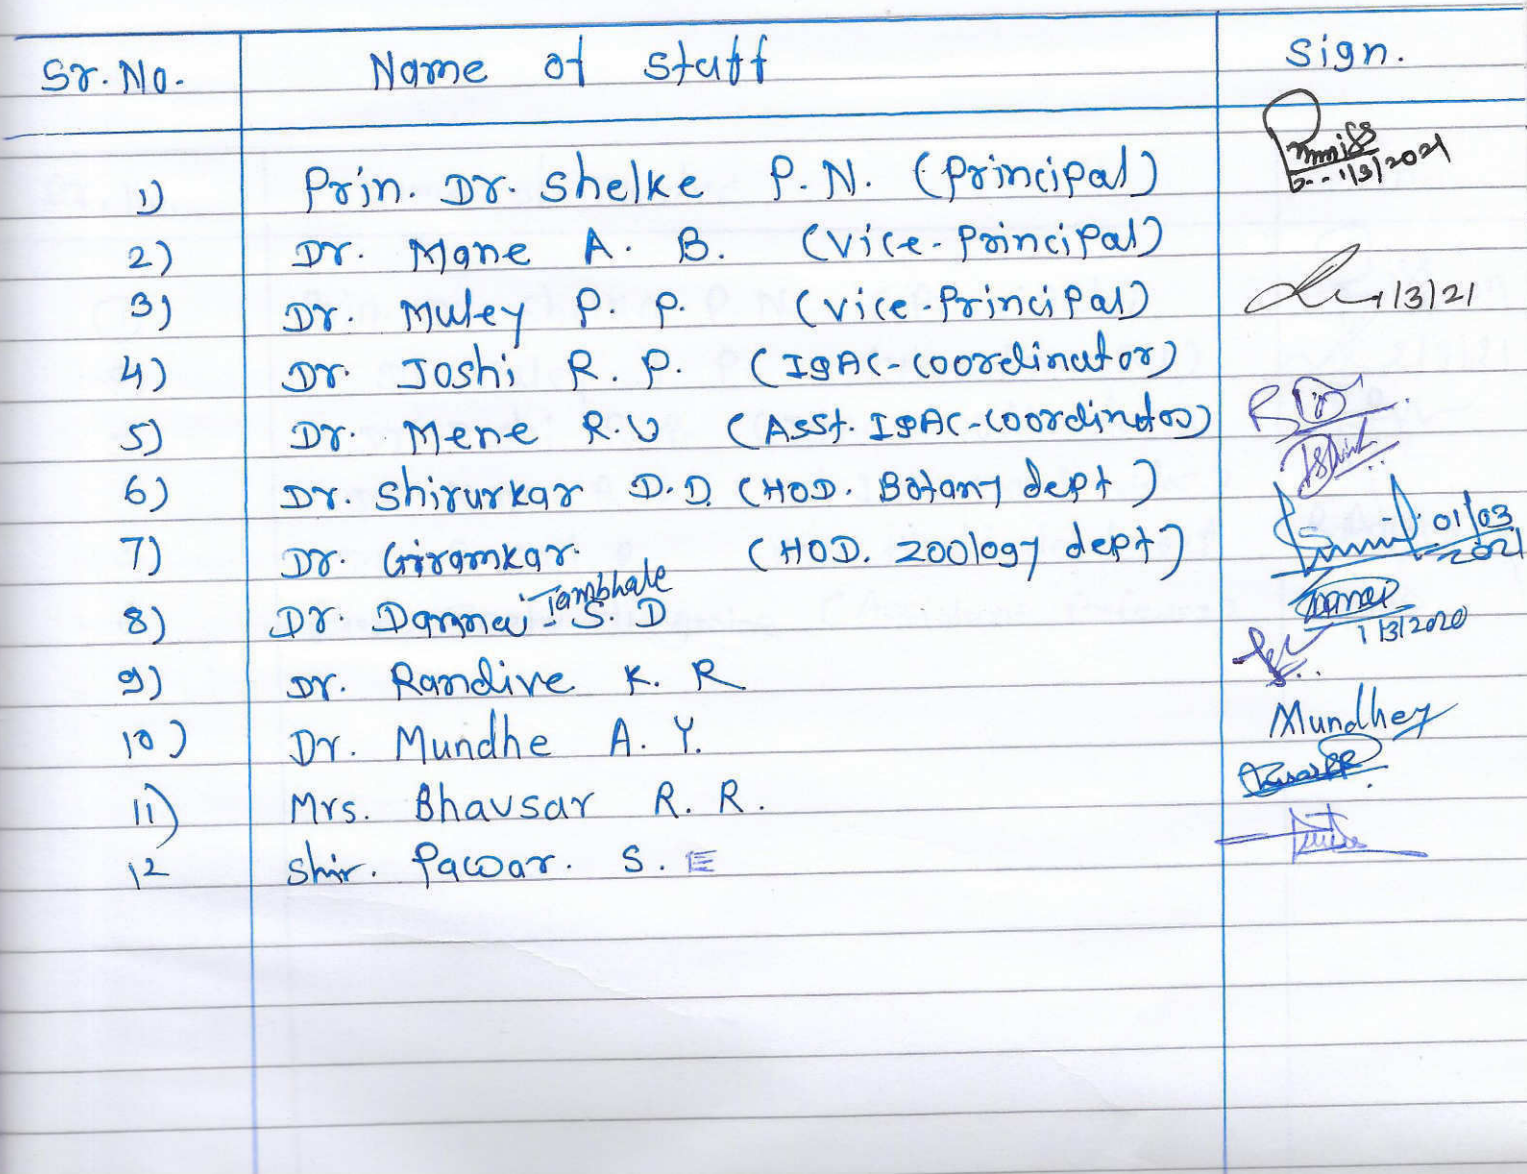 Sr. No. Name of staff Sign.
1) Prin. Dr. Shelke P. N. (Principal) 1/3/2021
2) Dr. Mane A. B. (Vice-Principal)
3) Dr. Muley P. P. (Vice-Principal) 1/3/21
4) Dr. Joshi R. P. (IQAC-Coordinator)
5) Dr. Mene R.V (Asst. IQAC-Coordinator)
6) Dr. Shirurkar D.D. (HOD. Botany dept)
7) Dr. Giramkar. (HOD. Zoology dept) 01/03
2021
Tambhale
8) Dr. Damnai S. D
1/3/2020
9) Dr. Randive K. R
10) Dr. Mundhe A. Y. Mundhey
11) Mrs. Bhavsar R. R.
12 Shir. Pawar. S. E